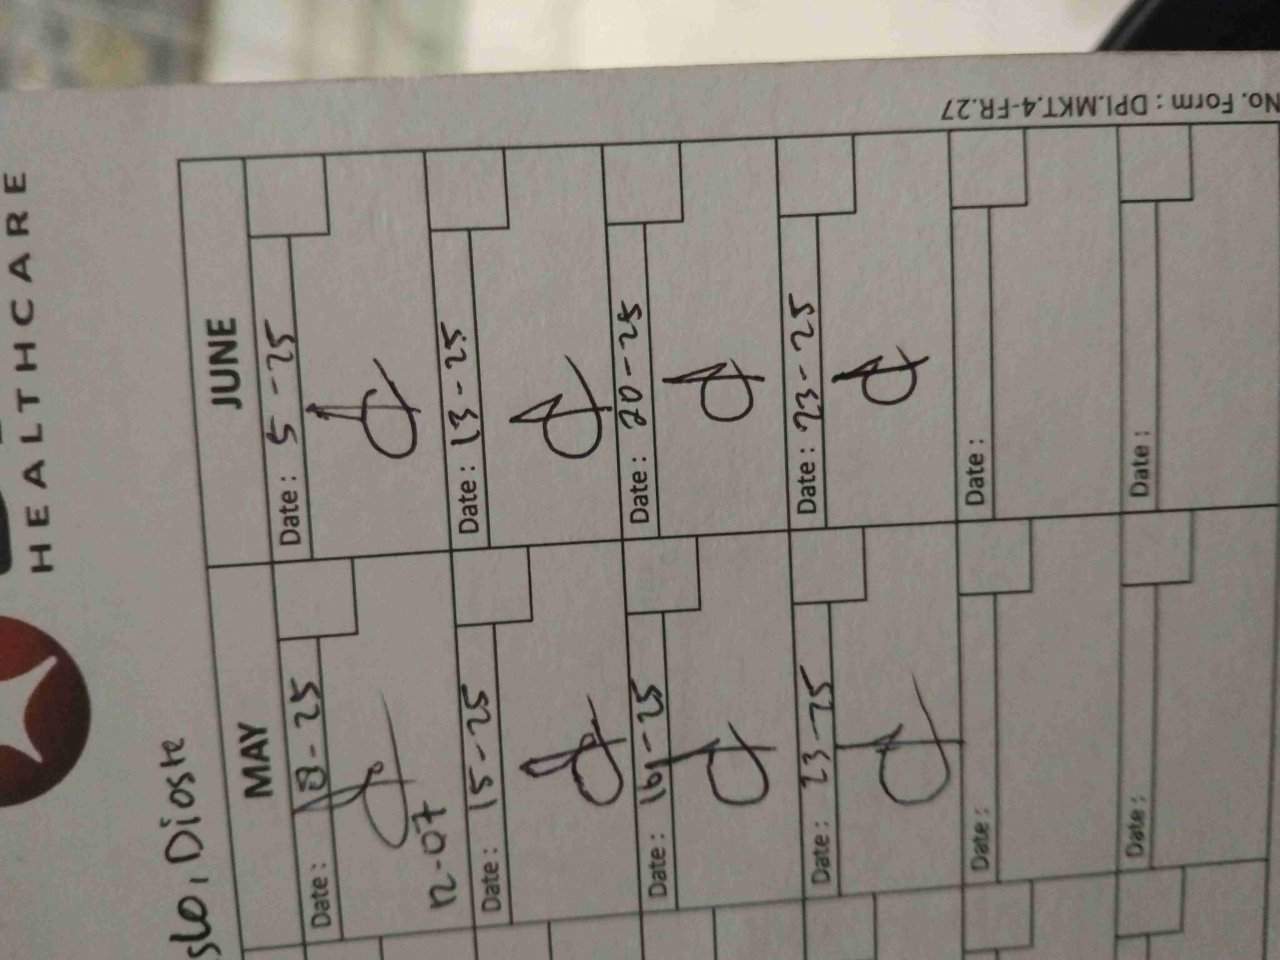 HEALTHCARE
slo, Dioste
MAY JUNE
Date: 8-25 Date: 5-25
12-07
Date: 15-25 Date: 13-25
Date: 16-25 Date: 20-25
Date: 23-25 Date: 23-25
Date: Date:
Date: Date:
No. Form : DPI.MKT.4-FR.27